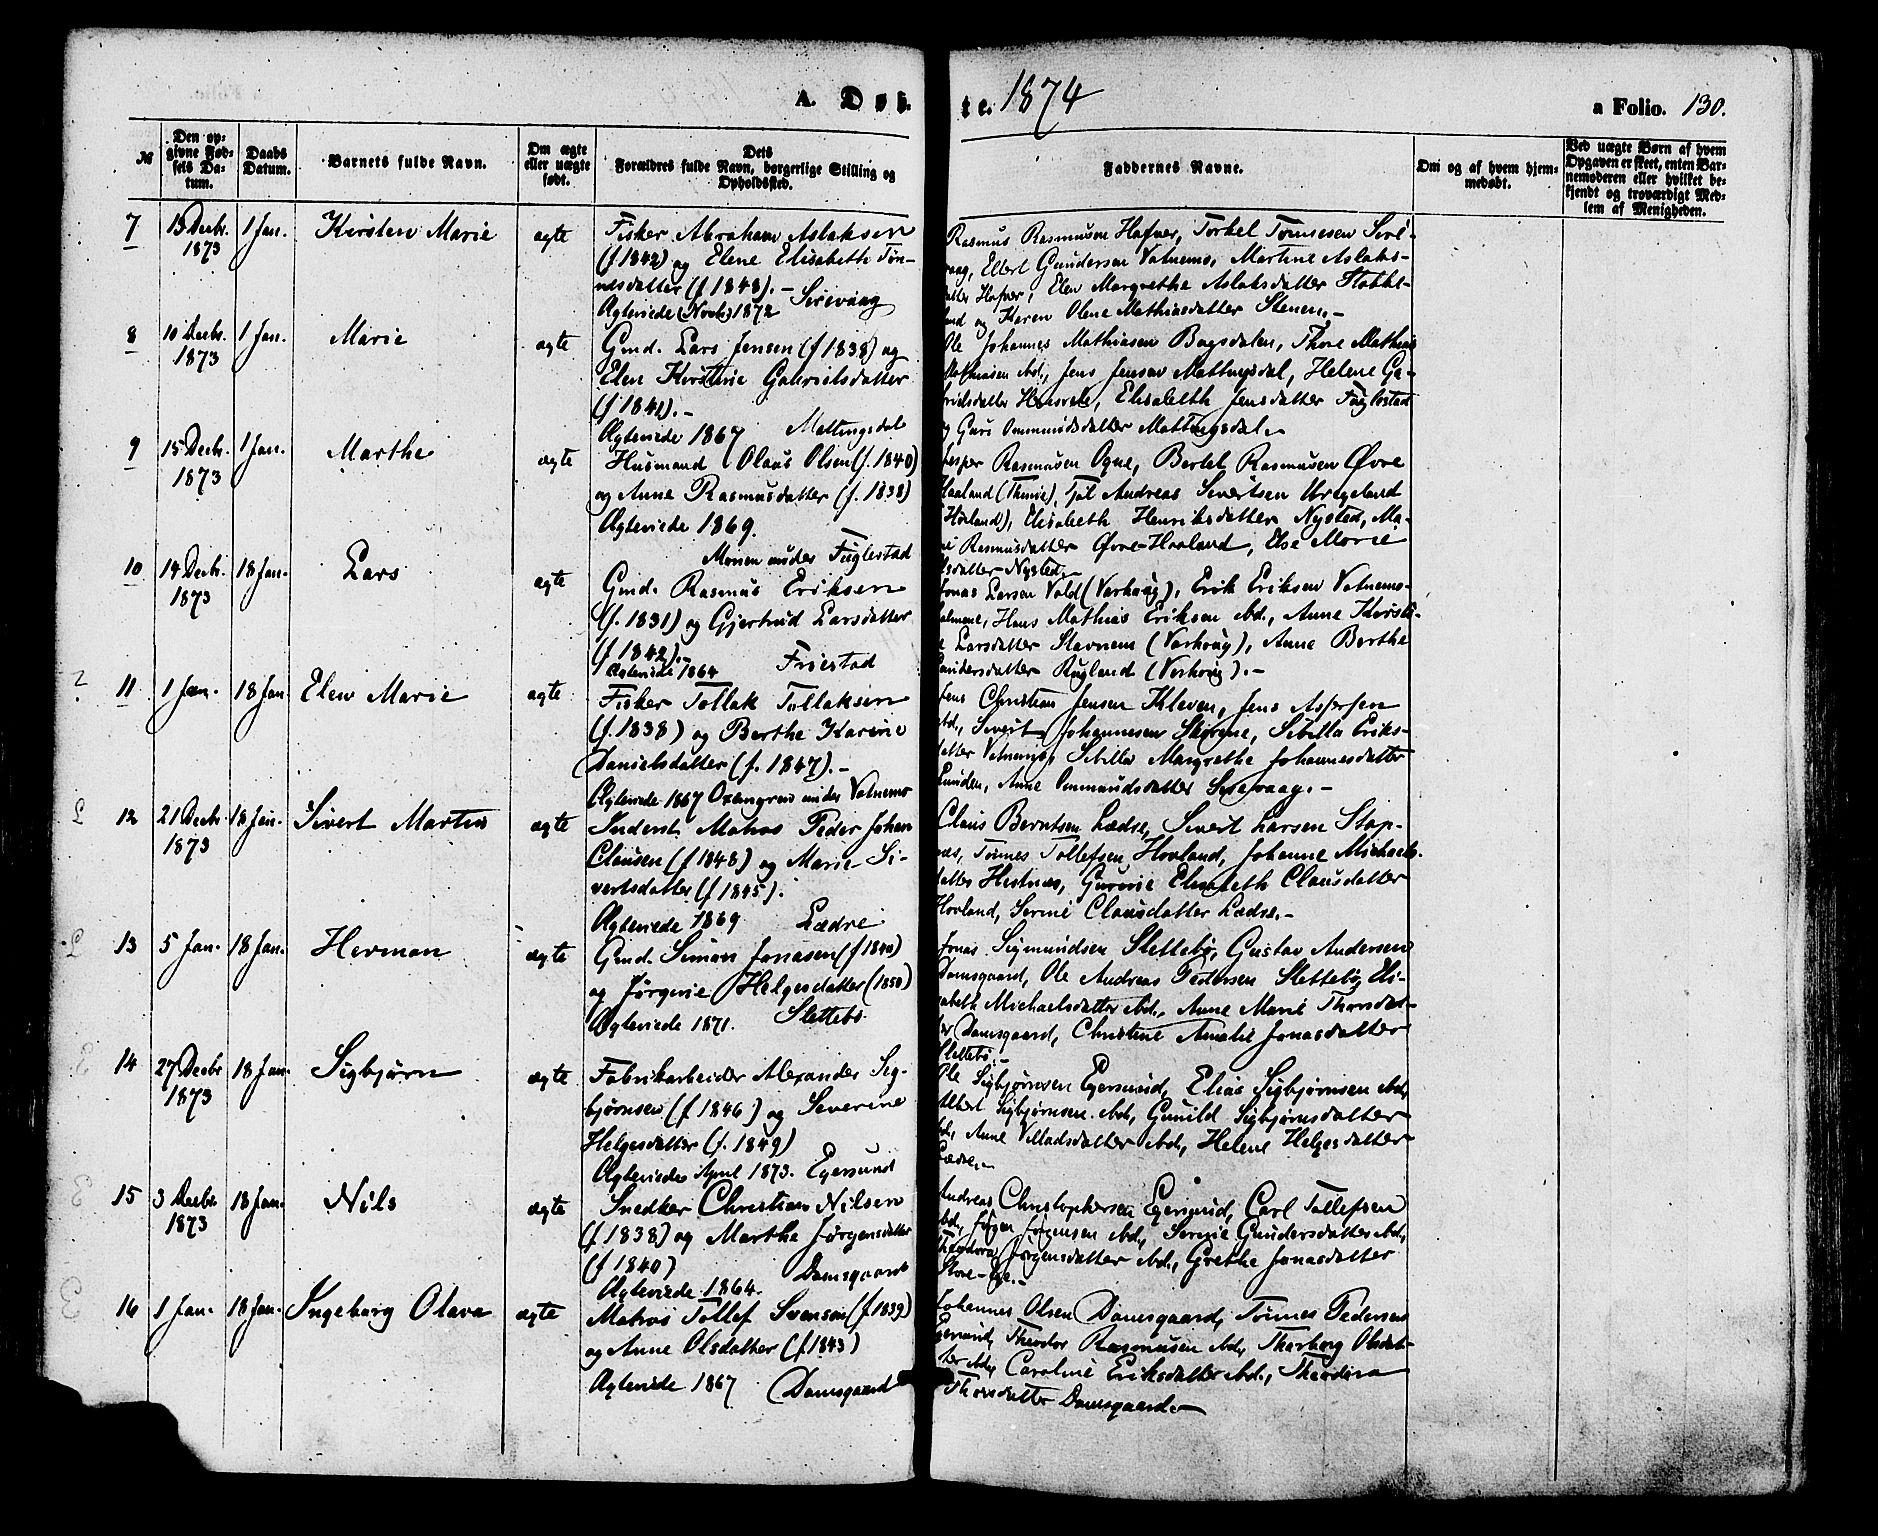 A. Døb-
te. 1874
a Folio. 130.
№
Den op-
givne Fød-
sels Da-
tum.
Daabs
Datum.
Barnets fulde Navn.
Om ægte
eller uægte
født.
Dets
Forældres fulde Navn, borgerlige Stilling og
Opholdssted.
Faddernes Navne.
Om og af hvem hjem-
medøbt.
Ved uægte Børn af hvem
Opgaven er skeet, enten Bar-
nemoderen eller hvilket be-
kjendt og troværdigt Med-
lem af Menigheden.
7
15 Decbr.
1873
1 Jan.
Kirsten Marie
ægte
Fisker Abraham Aslaksen
(f 1842) og Elene Elisabeth Tøn-
nesdatter (f 1848). -
Sirevaag
Ægteviede (Novb.) 1872
Rasmus Rasmusen Hafner, Torkel Tønnesen Sire-
vaag, Ellert Gundersen Vatnemo, Martine Aslaks-
datter Hafner, Elen Margrethe Aslaksdatter Stokke-
land og Karen Olene Mathiasdatter Stenen. -
8
10 Decbr.
1873
1 Jan.
Marie
ægte
Gmd. Lars Jensen (f 1838) og
Elen Kirstine Gabrielsdatter
(f 1841). -
Ægteviede 1867 Mattingsdal
Ole Johannes Mathiasen Bogsdalen, Thore Mathias
Mathiasen ibd., Jens Jensen Mattingsdal, Helene Ga-
brielsdatter, Elisabeth Jensdatter Fuglestad
og Guri Ommundsdatter Mattingsdal. -
9
15 Decbr.
1873
1 Jan.
Marthe
ægte
Husmand Olaus Olsen (f. 1840)
og Anne Rasmusdatter (f. 1838)
Ægteviede 1869.
Monen under Fuglestad
Jesper Rasmusen Ogne, Bertel Rasmusen Øvre
Haaland (Thime), Tjøl Andreas Sivertsen
Hovland), Elisabeth Henriksdatter Nysted, Ma-
ri Rasmusdatter Øvre-Haaland, Else Marie
datter Nysted. -
10
14 Decbr.
1873
18 Jan.
Lars
ægte
Gmd. Rasmus Eriksen
(f. 1831) og Gjertrud Larsdatter
(f 1842). -
Ægteviede 1864 Friestad
Jonas Larsen Vold (Varhoug), Erik Eriksen Vatnemo-
, Hans Mathias Eriksen ibd., Anne Kirsti-
ne Larsdatter Stavnem (Varhoug), Anne Berthe
Gundersdatter Rugland (Varhoug). -
11
1 Jan.
18 Jan
Elen Marie
ægte
Fisker Tollak Tollaksen
(f. 1838) og Berthe Karine
Danielsdatter (f. 1847). -
Ægteviede 1867 Oxengren under Vatnemo
Jens Christian Jensen Kleven, Jens Aspersen
ibd., Sivert Johannesen Skorene, Sibilla Eriks-
datter Vatnemo, Sibille Margrethe Johannesdatter
Lunden, Anne Ommundsdatter Sirevaag. -
12
21 Decbr.
1873
18 Jan.
Sivert Martin
ægte
Inderst. Matros Peder Johan
Clausen (f 1848) og Marie Si-
vertsdatter (f 1845).
Ægteviede 1869 Lædre
Claus Berntsen Lædre, Sivert Larsen Stap-
næs, Tønnes Tollefsen Hovland, Johanne Michaels-
datter Hestnæs, Gurine Elisabeth Clausdatter
Hovland, Serine Clausdatter Lædre. -
13
5 Jan.
18 Jan.
Herman
ægte
Gmd. Simon Jonasen (f 1840)
og Jørgine Helgesdatter (1850)
Ægteviede 1871. Slettebø
Jonas Sigmundsen Slettebø, Gustav Andersen
Damsgaard, Ole Andreas Pedersen Slettebø, Eli-
sabeth Michaelsdatter ibd., Anne Marie Thorsdat-
ter Damsgaard, Christine Amalie Jonasdatter
Slettebø. -
14
27 Decbr
1873
18 Jan.
Sigbjørn
ægte
Fabrikarbeider Alexander Sig-
bjørnsen (f 1846) og Severine
Helgesdatter (f. 1849)
Ægteviede April 1873. Egersund
Ole Sigbjørnsen Egersund, Elias Sigbjørnsen ibd.,
Albert Sigbjørnsen ibd., Gunild Sigbjørnsdatter
ibd., Anne Villadsdatter ibd., Helene Helgesdatter
Lædre. -
15
3 Decbr.
1873
18 Jan.
Nils
ægte
Snedker Christian Nilsen
(f 1838) og Marthe Jørgensdatter
(f 1840)
Ægteviede 1864. Damsgaard
Andreas Christophersen Egersund, Carl Tollefsen
ibd., Jørgen Jørgensen ibd., Serine Gundersdatter ibd.,
Theodora Jørgensdatter ibd., Grethe Jonasdatter
Store-Ege. -
16
1 Jan.
18 Jan.
Ingeborg Olava
ægte
Matros Tollef Svensen (f 1839)
og Anne Olsdatter (f 1843)
Ægteviede 1867 Damsgaard
Johannes Olsen Damsgaard, Tønnes Pedersen
Egersund, Theodor Rasmusen ibd., Thorborg Olsdat-
ter ibd., Caroline Eriksdatter ibd., Theodora
Thorsdatter Damsgaard. -